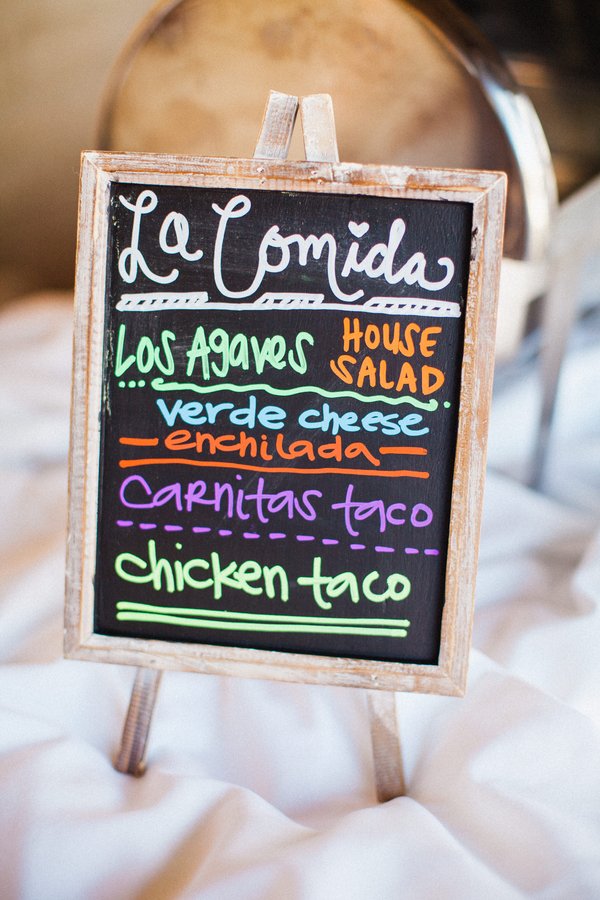 La Comida
Los Agaves HOUSE SALAD
verde cheese
enchilada
carnitas taco
chicken taco